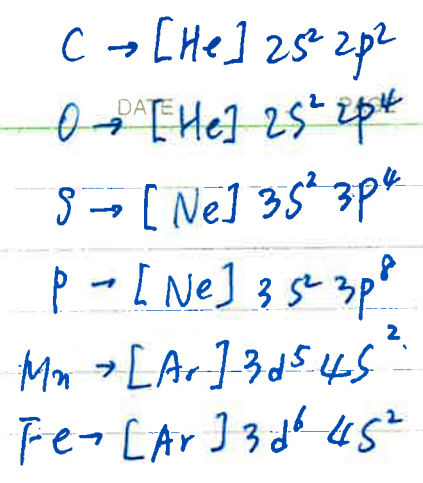 C → [He] 2s² 2p²
DATE
O → [He] 2s² 2p⁴
S → [Ne] 3s² 3p⁴
P → [Ne] 3s² 3p⁸
Mn → [Ar] 3d⁵ 4s²
Fe → [Ar] 3d⁶ 4s²